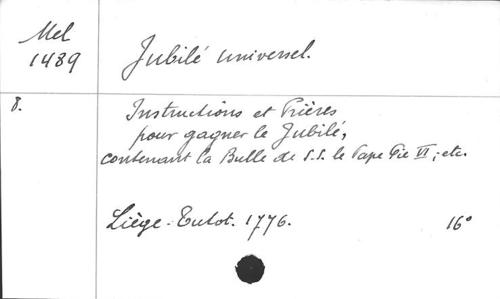 Mel
1489
Jubilé universel.
8.
Instructions et Prières
pour gagner le Jubilé,
contenant la Bulle de S.S. le Pape Pie VI; etc.
Liège. Tutot. 1776.
16°